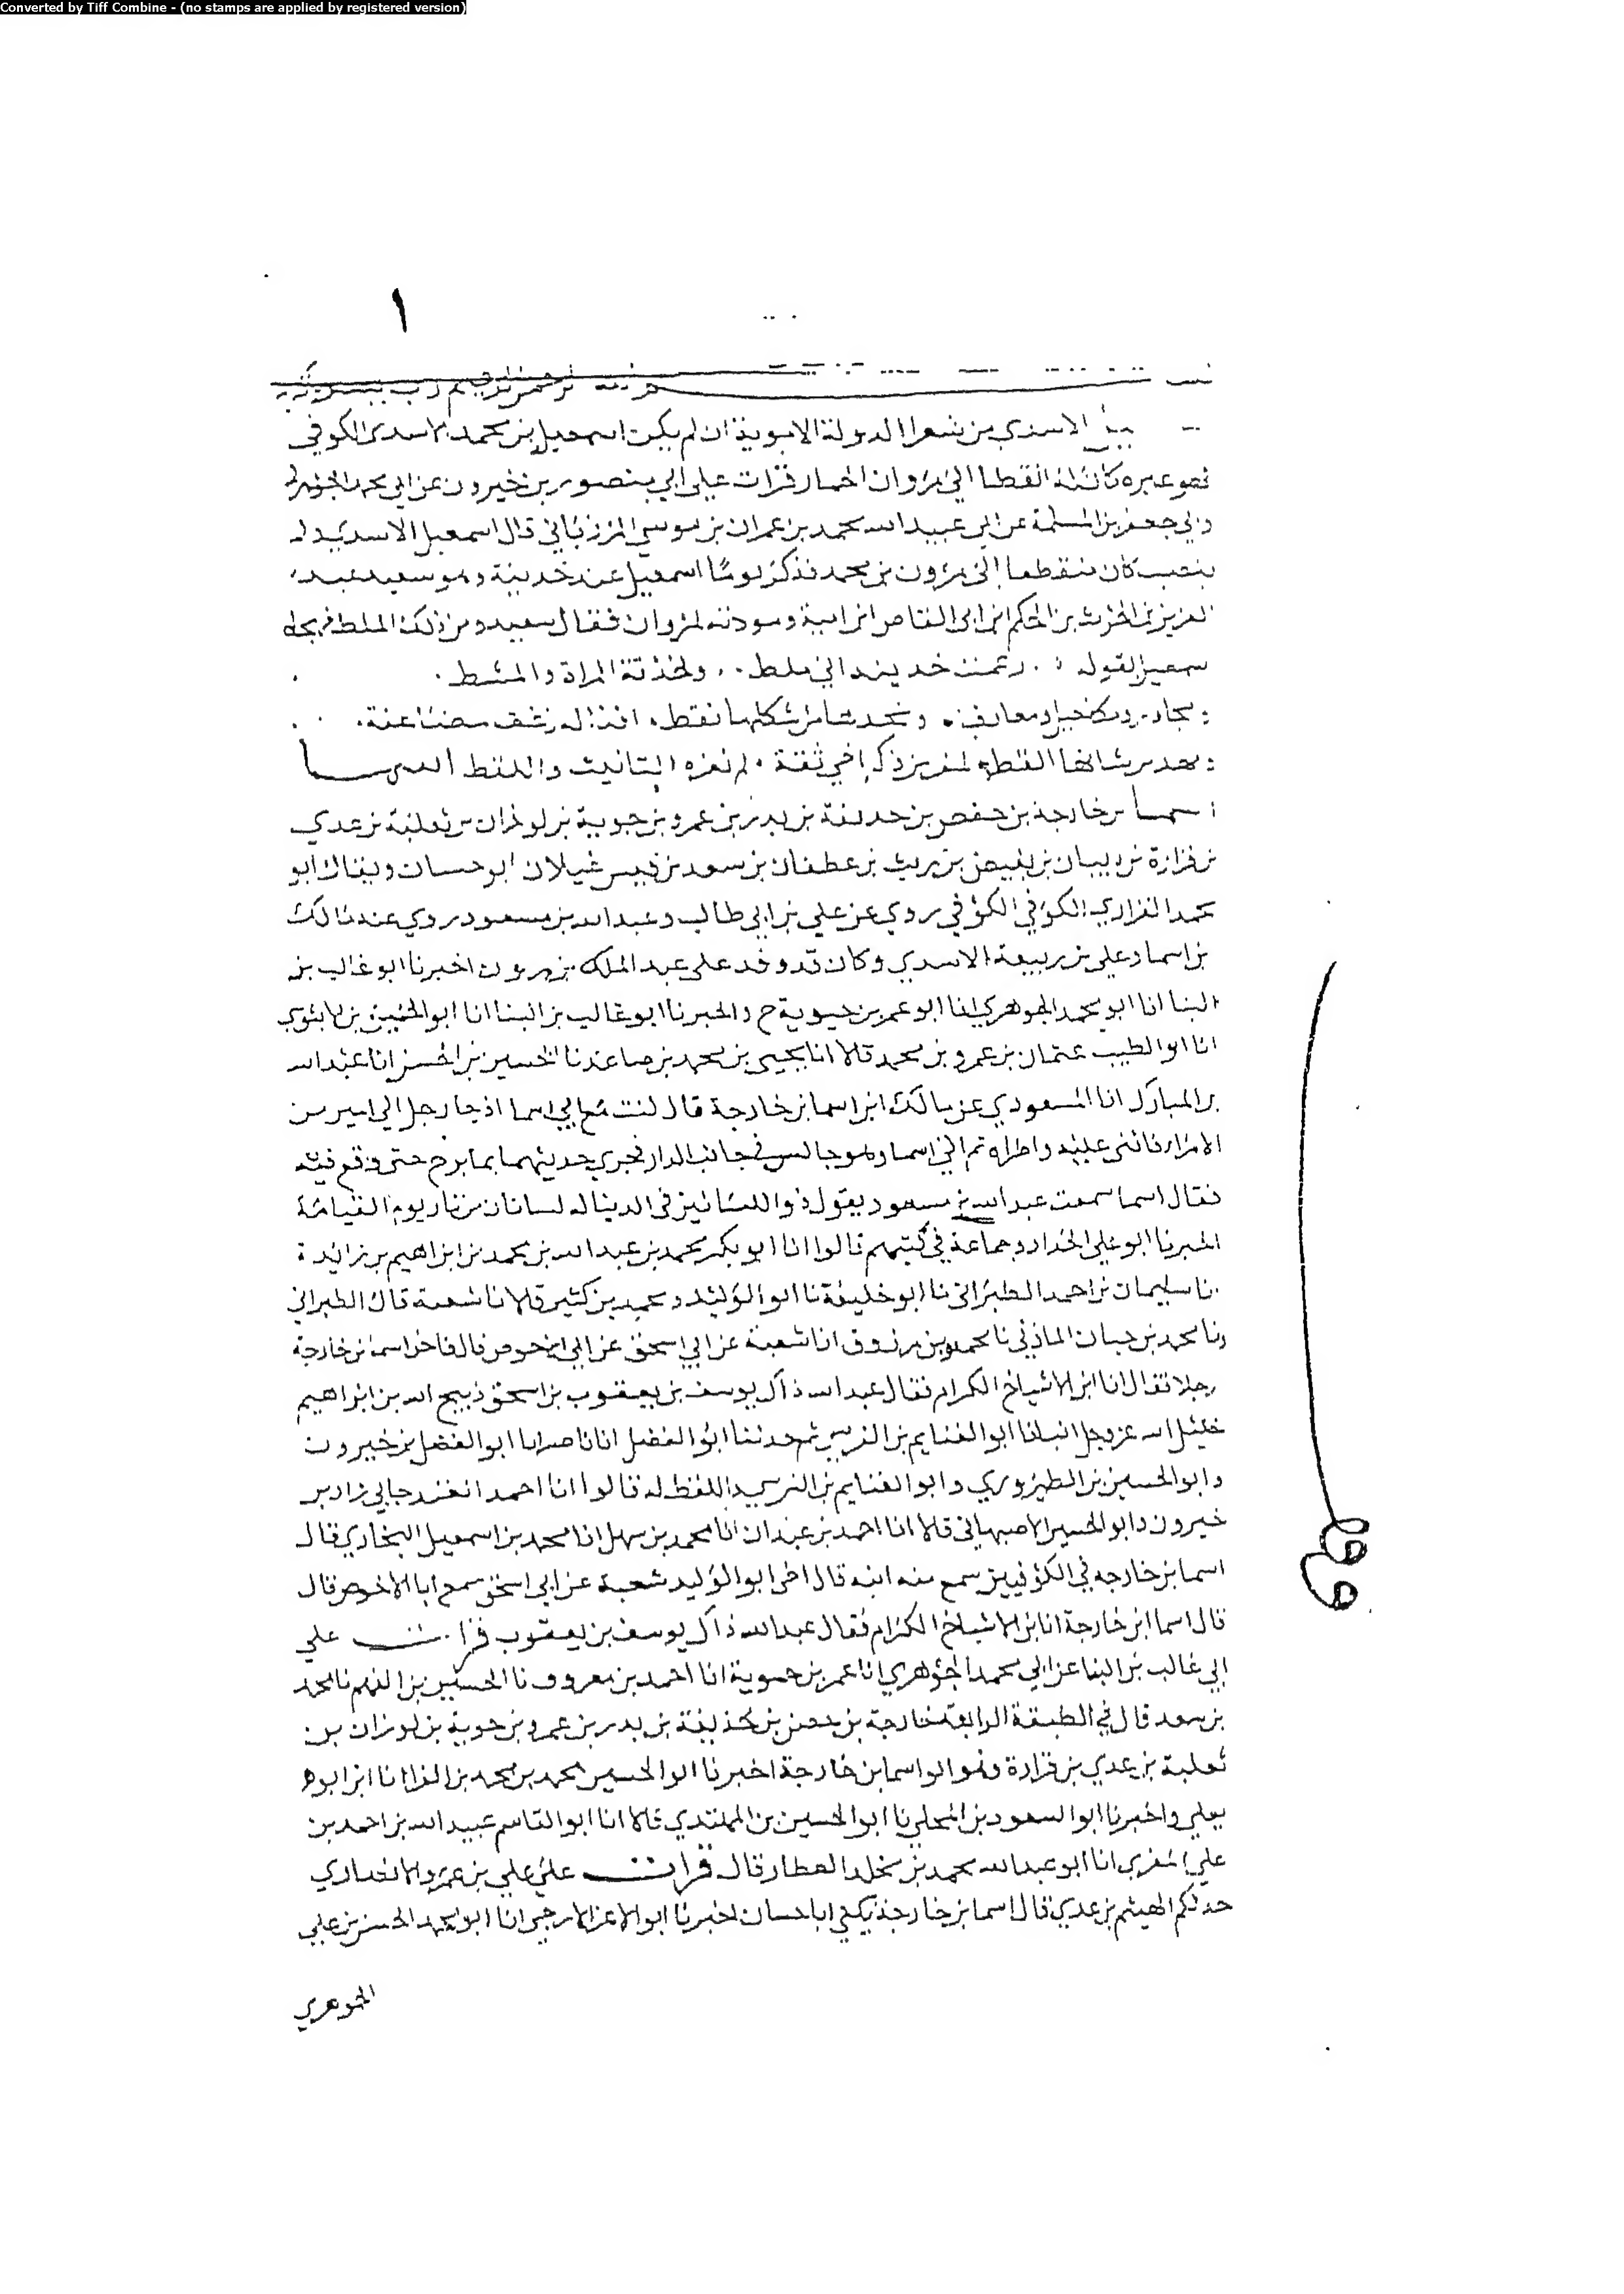 Converted by Tiff Combine - (no stamps are applied by registered version)
١
الرحمن الرحيم رب يسر
الاسدي من شعرا الدولة الاموية ان لم يكن اسمعيل بن محمد الاسدي الكوفي
فهو غيره كان له انقطا الى مروان الحمار قرات على ابي منصور بن خيرون عن ابي محمد الجوهري
وابي جعفر بن المسلمة عن ابي عبيد الله محمد بن عمران بن موسى المرزباني قال اسمعيل الاسدي له
كان منقطعا الى مرون بن محمد فذكر يوما اسمعيل عند خدينة وهو سعيد عبد
العزيز بن الحرث بن الحكم ابن ابي العاص ابن امية ومودته لمروان فقال سعيد ومن ذلك الملط فهجاه
اسمعيل بقوله زعمت خدينة اني ملط ولخدنة المراة والمشط
ومعازف ونحدها من شكلها نقط افذاك زغف مضاعفة
ذكر اخي ثقة لم نغزه التانيث واللقط
اسما بن خارجة بن حفص بن حديفة بن بدر بن عمرو بن جوية بن لوذان بن ثعلبة بن عدي
بن فزارة بن ديبان بن بغيض بن ريث بن عطفان بن سعد بن قيس غيلان ابو حسان ويقال ابو
محمد الفزاري الكوفي الكوفي روي عن علي بن ابي طالب وعبد الله بن مسعود روي عنه مالك
بن اسما وعلي بن ربيعة الاسدي وكان قد وفد على عبد الملك بن مرون اخبرنا ابو غالب بن
البنا انا ابو محمد الجوهري انا ابو عمر بن حيوية ح واخبرنا ابو غالب بن البنا انا ابو الحسين بن الابنوسي
انا ابو الطيب عثمان بن عمرو بن محمد قالا انا يحيى بن محمد بن صاعد نا الحسين بن الحسن انا عبد الله
بن المبارك انا المسعودي عن مالك ابن اسما بن خارجة قال كنت مع ابي اسما اذ جا رجل الى امير من
الامراء فاثنى عليه واطراه ثم الى اسما وهو جالس في جانب الدار فجرى حديثهما بما برح حتى وقع فيه
فقال اسما سمعت عبد الله بن مسعود يقول ذو اللسانين في الدنيا له لسانان من نار يوم القيامة
اخبرنا ابو علي الحداد وجماعة في كتبهم قالوا انا ابو بكر محمد بن عبد الله بن محمد بن ابراهيم بن زائدة
نا سليمان بن احمد الطبراني نا ابو خليفة نا ابو الوليد ومحمد بن كثير قالا نا شعبة قال الطبراني
ونا محمد بن حبان المازني نا محمد وبن مرزوق انا شعبة عن ابي اسحق عن ابي الاحوص قال فاخر اسما بن خارجة
رجلا فقال انا ابن الاشياخ الكرام فقال عبد الله ذاك يوسف بن يعقوب بن اسحق ذبيح الله بن ابراهيم
خليل الله عز وجل انبانا ابو الغنايم بن النرسي ثم حدثنا ابو الفضل انا ناصر انا ابو الفضل بن خيرون
وابو الحسين بن الطيوري وابو الغنايم بن النرسي واللفظ له قالوا انا احمد زاد بن
خيرون وابو الحسين الاصبهاني قالا انا احمد بن عبدان انا محمد بن سهل انا محمد بن اسمعيل البخاري قال
اسما بن خارجه في الكوفيين سمع منه ابنه قال ابو الوليد شعبة عن ابي اسحق سمع ابا الاخوص قال
قال اسما ابن خارجة انا بن الاشياخ الكرام فقال عبد الله ذاك يوسف بن يعقوب قرات علي
ابي غالب بن البنا عن ابي محمد الجوهري انا عمر بن حيوية انا احمد بن معروف نا الحسين بن الفهم نا محمد
بن سعد قال في الطبقة الرابعة خارجة بن حصن بن حذيفة بن بدر بن عمرو بن جوية بن لوزان بن
ثعلبة بن عدي بن قرارة وهو ابو اسما بن خارجة اخبرنا ابو الحسين محمد بن محمد بن الفرا انا ابو
يعلي واخبرنا ابو السعود بن المجلي نا ابو الحسين بن المهتدي قالا انا ابو القاسم عبيد الله بن احمد بن
علي انا ابو عبد الله محمد بن مخلد العطار قال قرات علي علي بن عمرو الانصاري
حدثكم الهيثم بن عدي قال اسما بن خارجة يكنى ابا حسان اخبرنا ابو الاعز انا ابو محمد الحسن بن علي
الجوهري